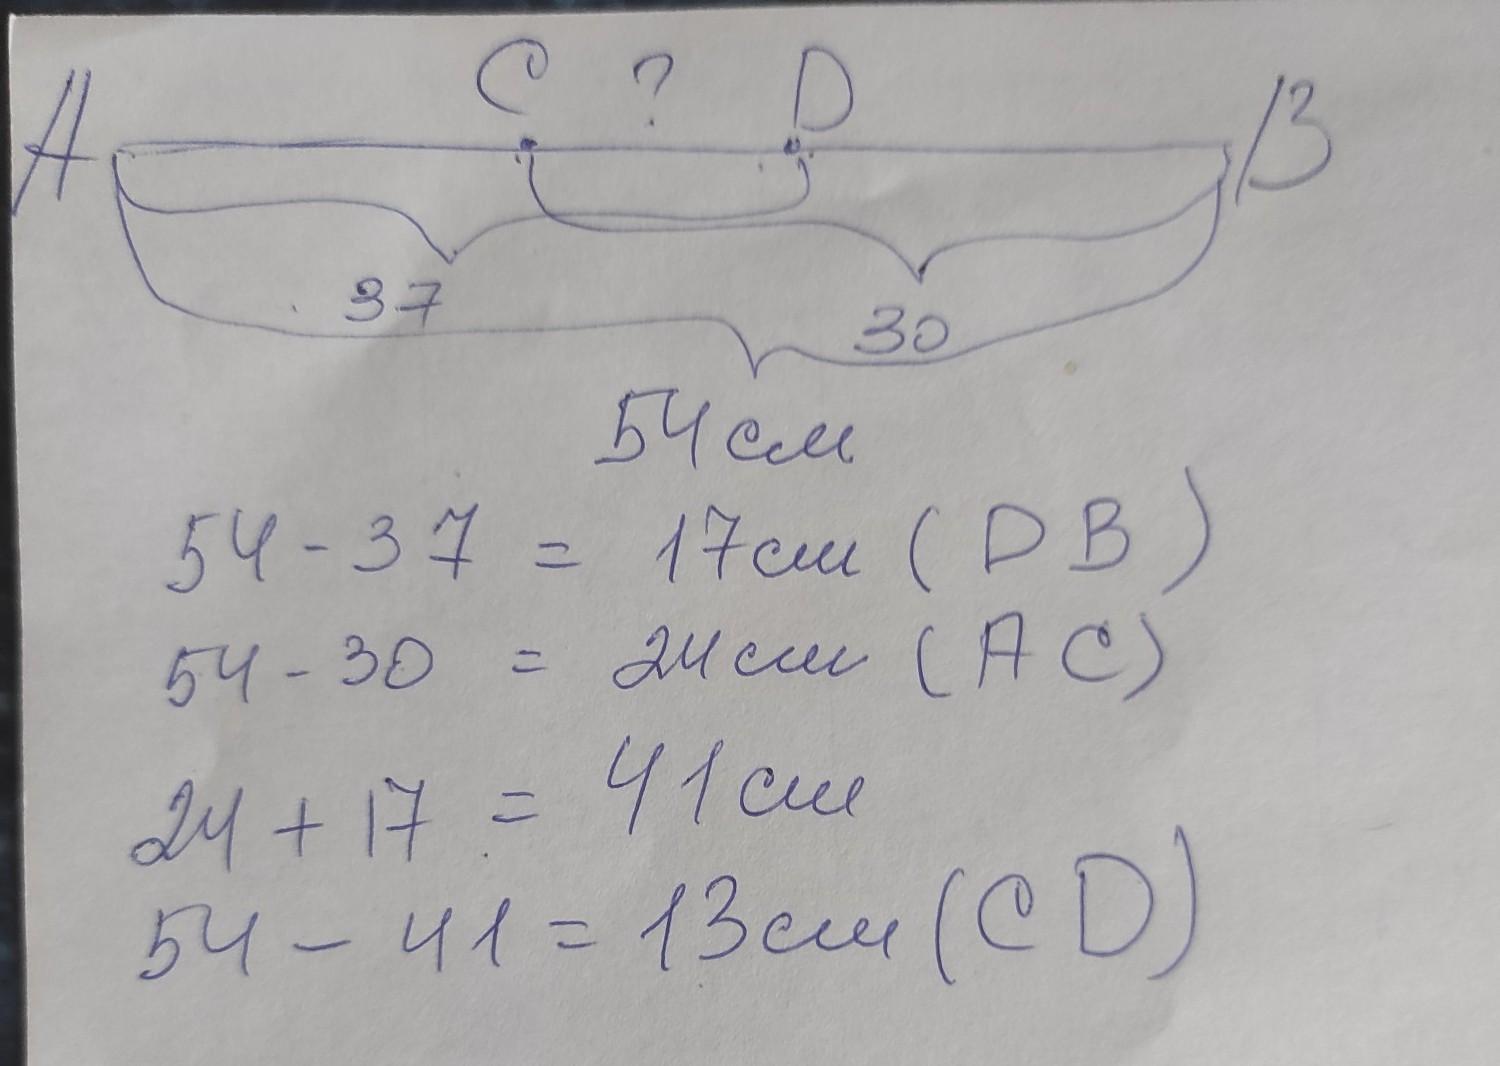 A C ? D B
37
30
54см
54-37 = 17см (DB)
54-30 = 24см (AC)
24+17 = 41см
54-41=13см (CD)